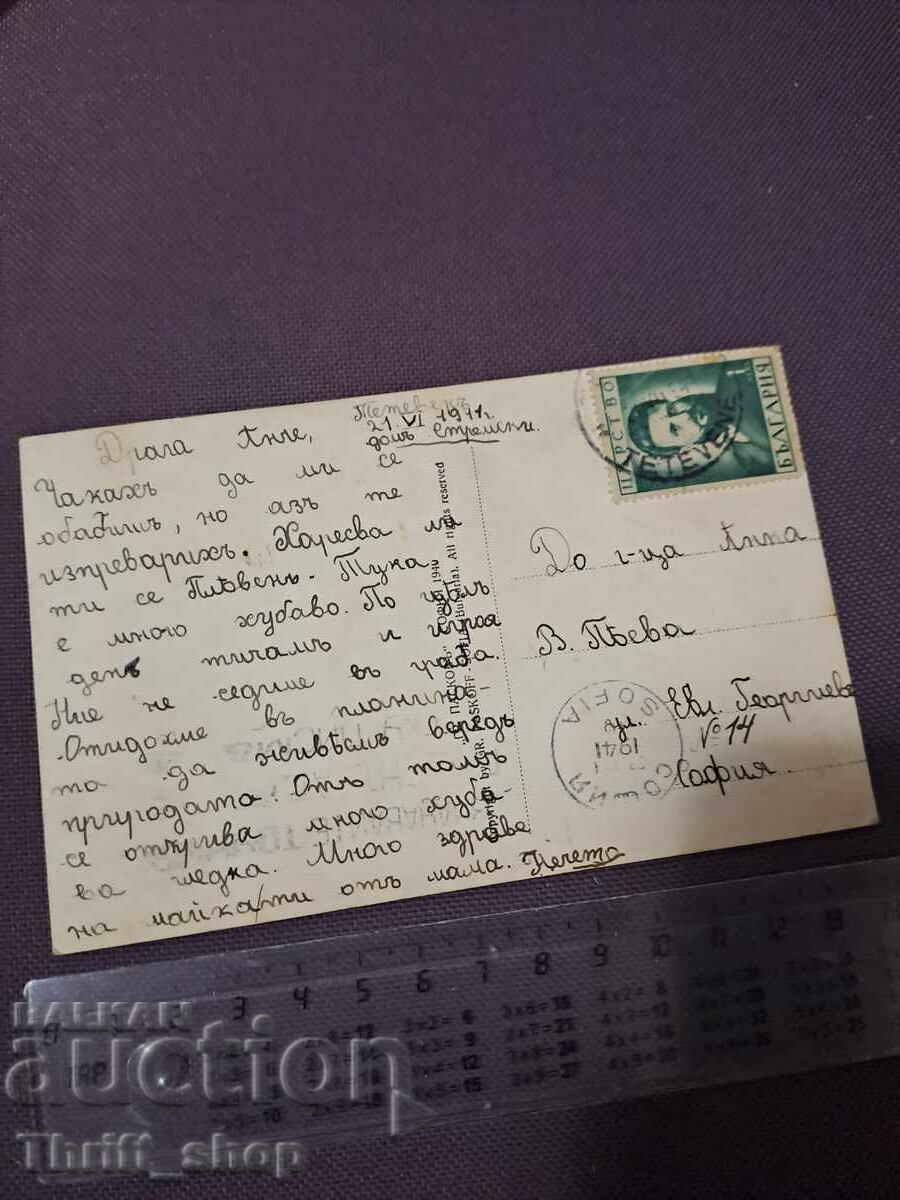 Тетевенъ
21 VI 1941 г.
домъ Стрешки.
Драга Анче,
Чакахъ да ми се
обадишъ, но азъ те
изпреварихъ. Харесва ли
ти се Плѣвенъ. Тука
е много хубаво. По цѣлъ
день тичамъ и играя
Ние не седиме въ града.
Отидохме въ планина-
та да живѣемъ всредъ
природата. Отъ тамъ
се открива много хуба-
ва гледка. Много здраве
на майка ти отъ мама. Печето
ПАСКОВЪ" СОФИЯ 1940
Copyright by GR. PASKOFF - SOFIA (Bulgaria). All rights reserved
ЦАРСТВО
БЪЛГАРИЯ
1 лв.
TETEVENE
До г-ца Анна
В. Пѣева
ул. Евл. Георгиевъ
№ 14
София
SOFIA
1941
СОФИЯ
1 2 3 4 5 6 7 8 9 10 11 12 13
BALKAN
auction
Thrift_shop